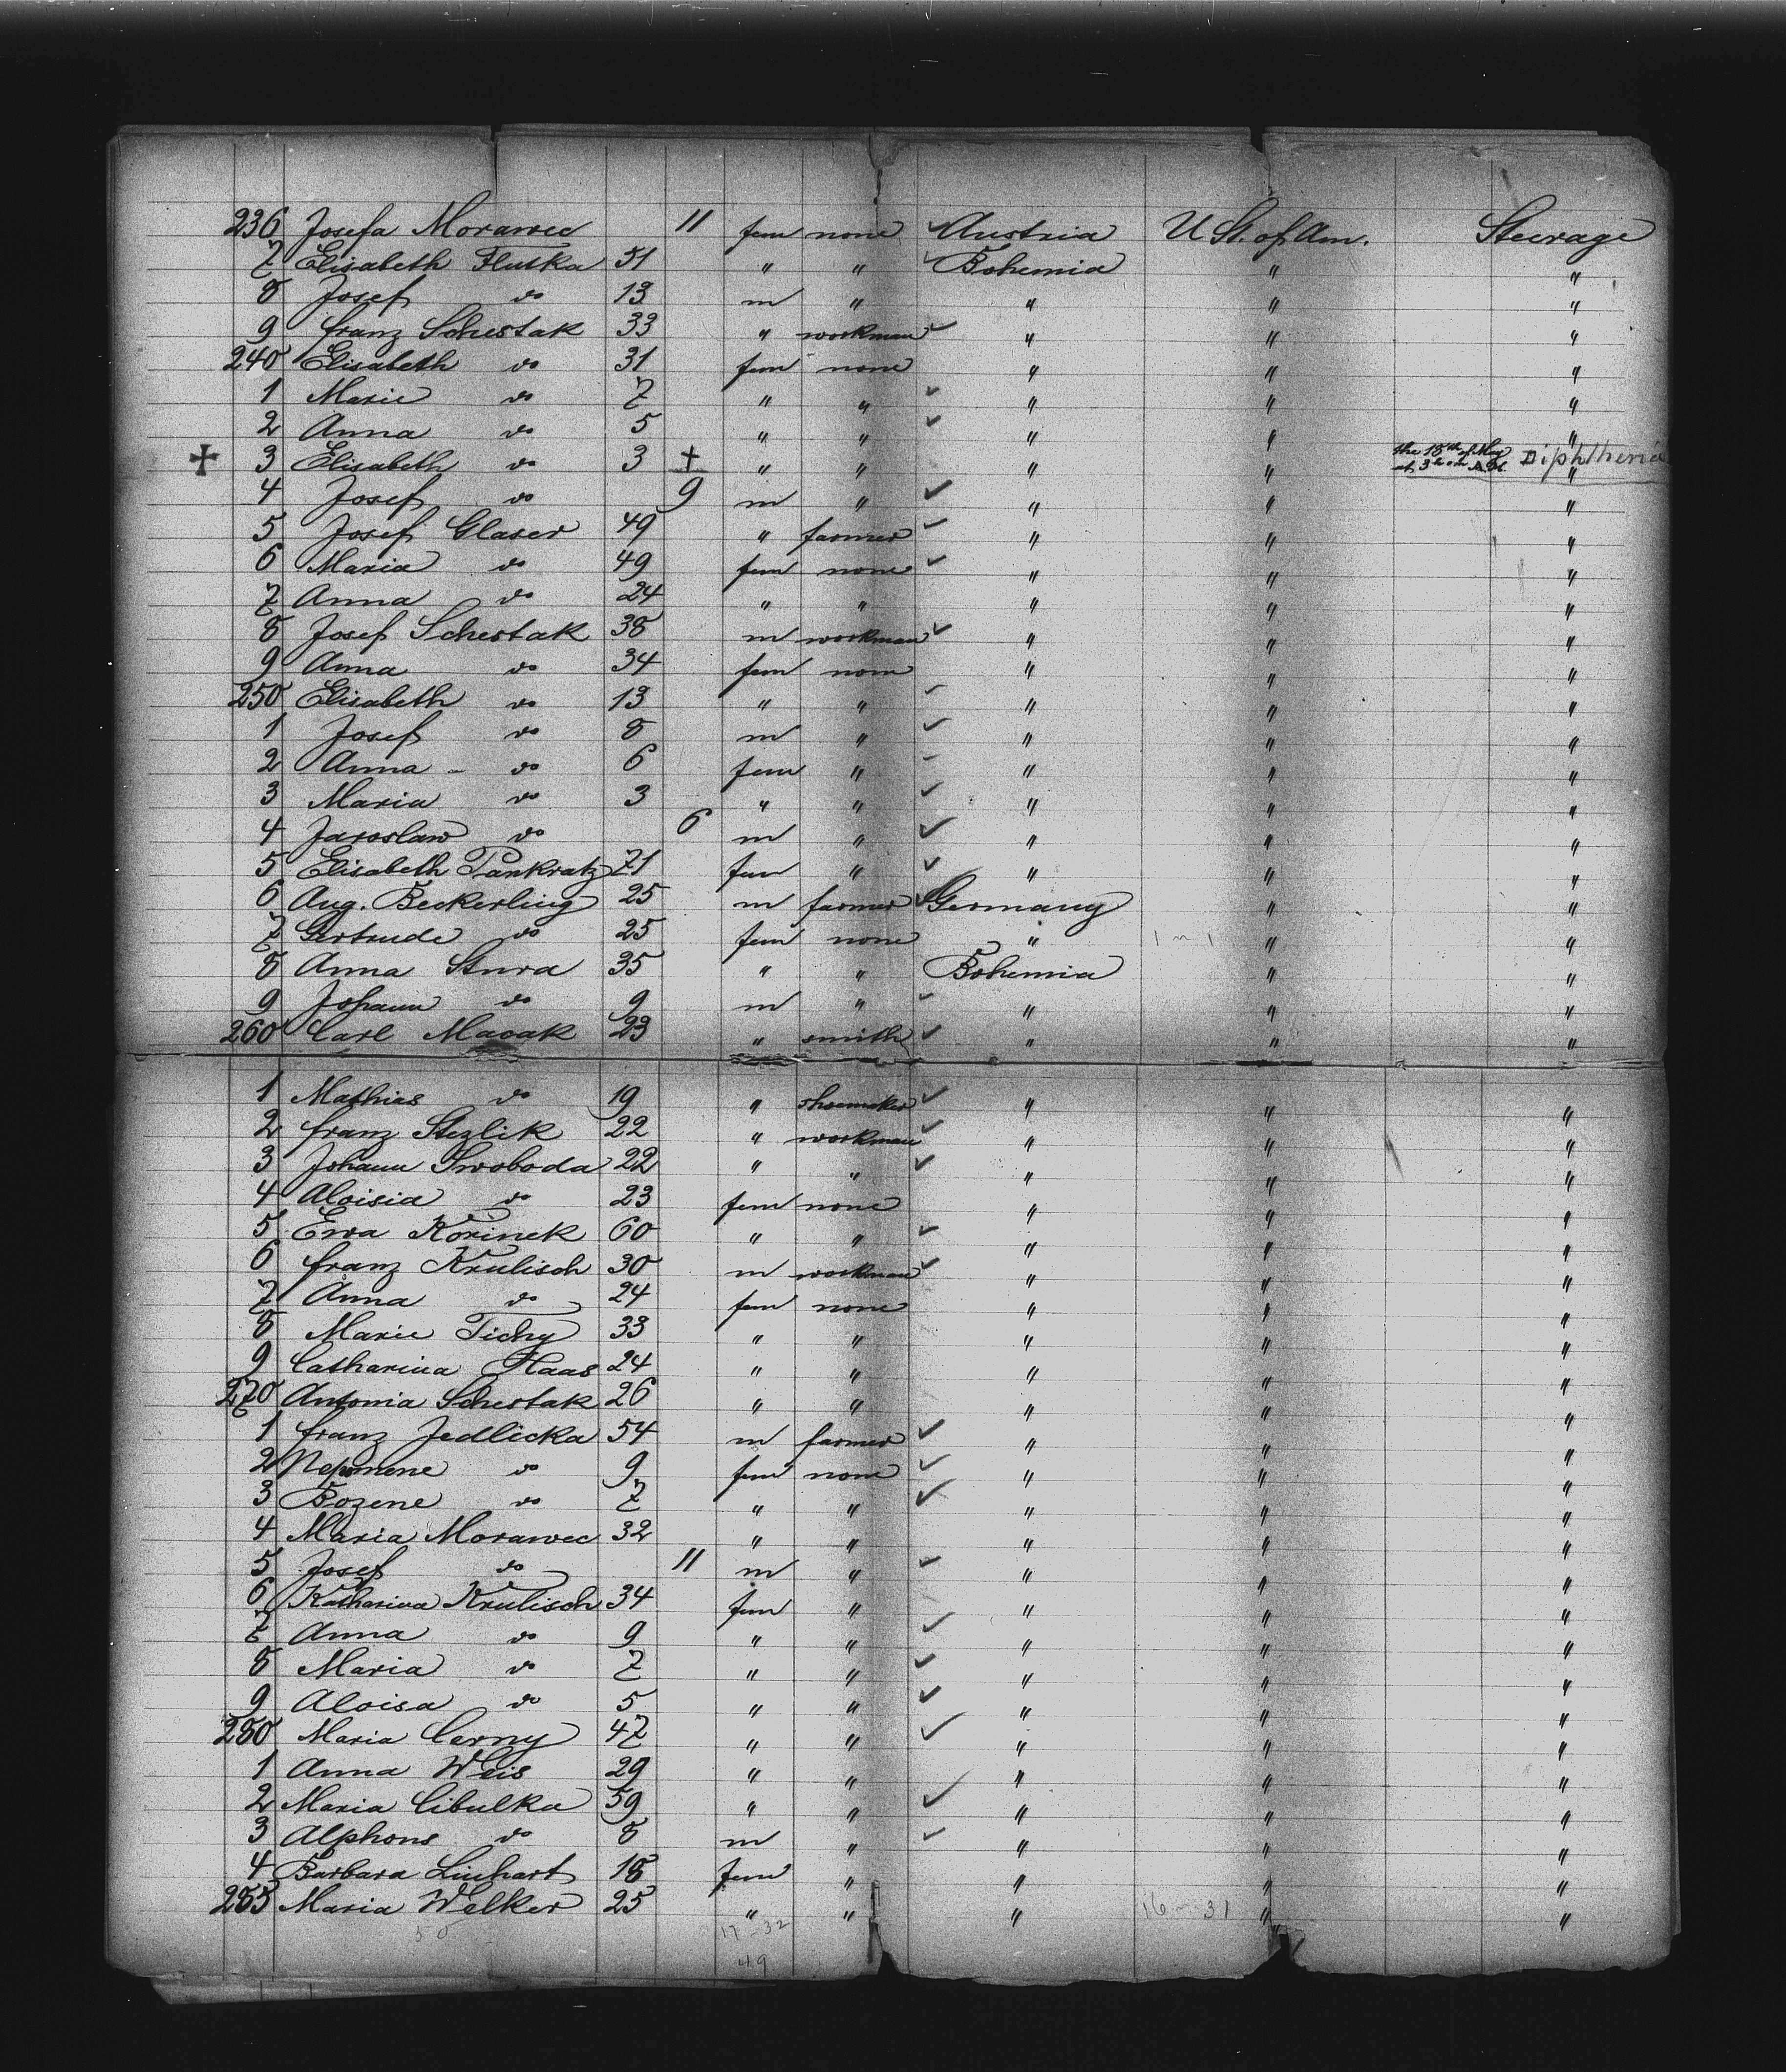 236 Josefa Morawec 11 fem none Austria U St. of Am. Steerage
7 Elisabeth Flutka 51 " " Bohemia " "
8 Josef do 13 m " " " "
9 Franz Schestak 33 " workman " " "
240 Elisabeth do 31 fem none " " "
1 Marie do 7 " " " " "
2 Anna do 5 " " " " "
+ 3 Elisabeth do 3 + " " " " the 18th of May at 3h am Diphtheria "
4 Josef do 9 m " " " "
5 Josef Glaser 49 " farmer " " "
6 Maria do 49 fem none " " "
7 Anna do 24 " " " " "
8 Josef Schestak 38 m workman " " "
9 Anna do 34 fem none " " "
250 Elisabeth do 13 " " " " "
1 Josef do 8 m " " " "
2 Anna - do 6 fem " " " "
3 Maria do 3 " " " " "
4 Jaroslaw do 6 m " " " "
5 Elisabeth Pankratz 71 fem " " " "
6 Aug. Beckerling 25 m farmer Germany " "
7 Gertrude do 25 fem none " " "
8 Anna Stura 35 " " Bohemia " "
9 Johann do 9 m " " " "
260 Carl Macak 23 " smith " " "
1 Mathias do 19 " shoemaker " " "
2 Franz Stezlik 22 " workman " " "
3 Johann Swoboda 22 " " " " "
4 Aloisia do 23 fem none " " "
5 Ewa Korinek 60 " " " " "
6 Franz Krulisch 30 m workman " " "
7 Anna do 24 fem none " " "
8 Marie Tichy 33 " " " " "
9 Catharina Haas 24 " " " " "
270 Antonia Schestak 26 " " " " "
1 Franz Jedlicka 54 m farmer " " "
2 Nepomene do 9 fem none " " "
3 Bozene do 7 " " " " "
4 Maria Morawec 32 " " " " "
5 Josef do 11 m " " " "
6 Katharina Krulisch 34 fem " " " "
7 Anna do 9 " " " " "
8 Maria do 7 " " " " "
9 Aloisa do 5 " " " " "
280 Maria Cerny 47 " " " " "
1 Anna Weis 29 " " " " "
2 Maria Cibulka 59 " " " " "
3 Alphons do 8 m " " " "
4 Barbara Linhart 18 fem " " " "
285 Maria Welker 25 " " " 16 - 31 " "
50 17-32
49